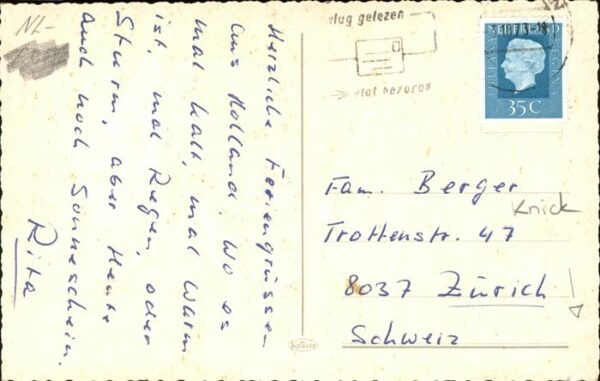 NL-
Herzliche Feriengrüssen
aus Holland. Wo es
mal kalt, mal warm
ist, mal Regen, oder
Sturm, aber Heute
auch noch Sonneschein.
Rita
vlug gelezen
NEDERLAND
JULIANA REGINA
35C
Fam. Berger
Knick
Trottenstr. 47
8037 Zürich
Schweiz